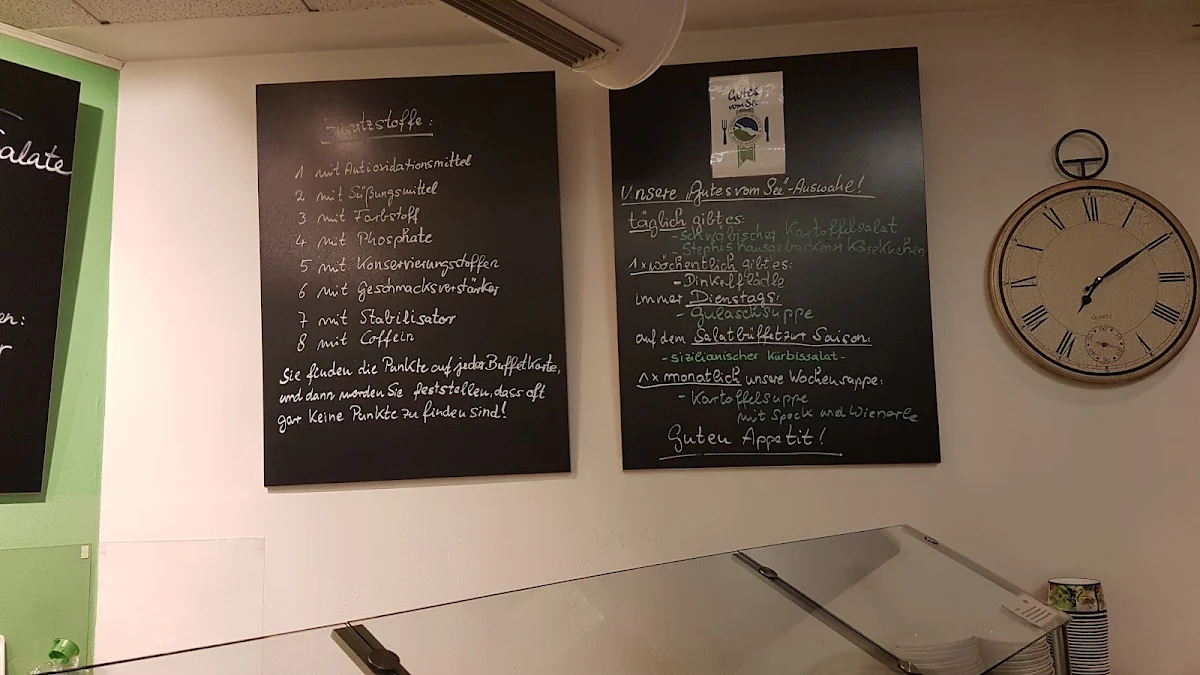 alate
en:
Zusatzstoffe:
1 mit Antioxidationsmittel
2 mit Süßungsmittel
3 mit Farbstoff
4 mit Phosphate
5 mit Konservierungsstoffen
6 mit Geschmacksverstärker
7 mit Stabilisator
8 mit Coffein
Sie finden die Punkte auf jeder Buffetkarte,
und dann werden Sie feststellen, dass oft
gar keine Punkte zu finden sind!
Gutes
vom See
Unsere „Gutes vom See"-Auswahl!
täglich gibt es:
- schwäbischer Kartoffelsalat
- Stephis hausgebackener Käsekuchen
1x wöchentlich gibt es:
- Dinkelflädle
immer Dienstags:
- Gulaschsuppe
auf dem Salatbüffet zur Saison:
- sizilianischer Kürbissalat -
1x monatlich unsere Wochensuppe:
- Kartoffelsuppe
mit Speck und Wienerle
Guten Appetit!
XII
I
II
III
IIII
V
VI
VII
VIII
IX
X
XI
QUARTZ